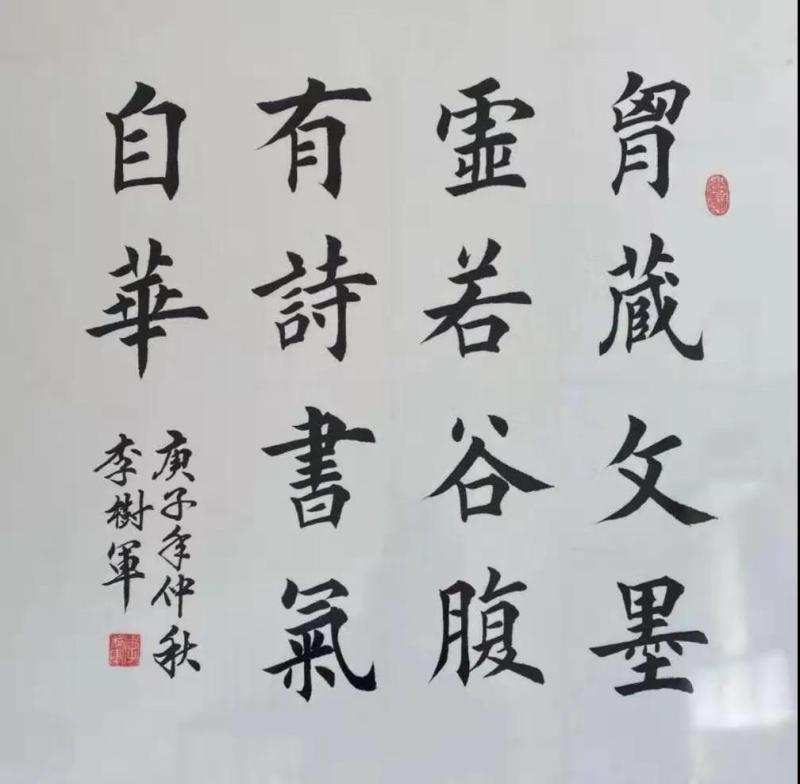 胷蔵文墨
虛若谷腹
有詩書氣
自華
庚子年仲秋
李樹軍